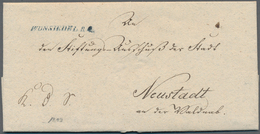 WUNSIEDEL
An
den Stiftungs-Ausschuß der Stadt
K. D. S.
Neustadt
an der Waldnab.